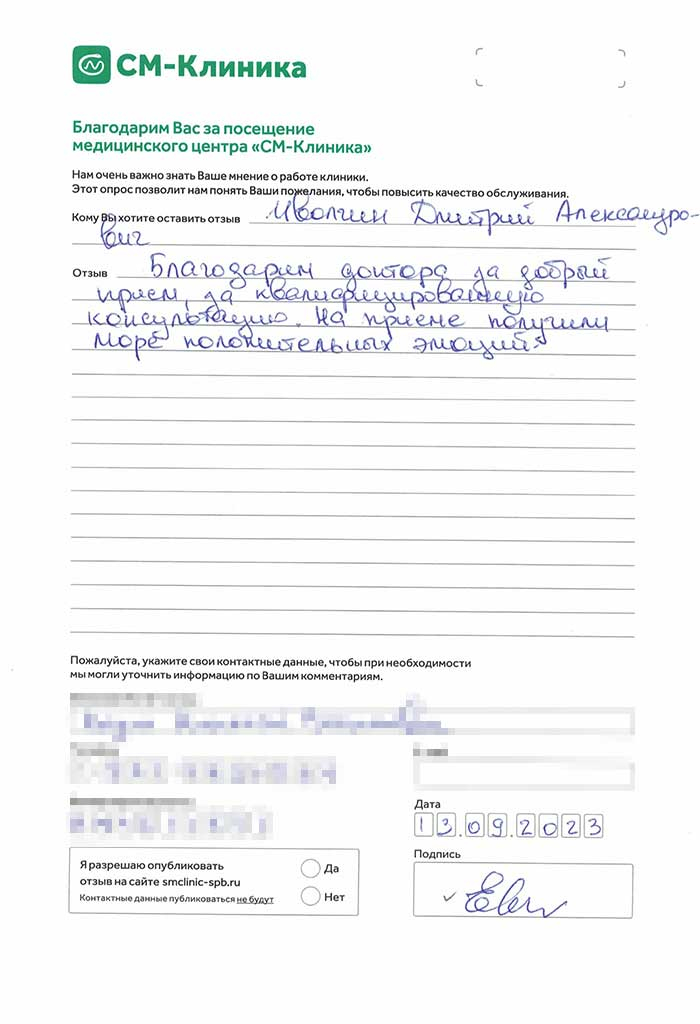 СМ-Клиника
Благодарим Вас за посещение
медицинского центра «СМ-Клиника»
Нам очень важно знать Ваше мнение о работе клиники.
Этот опрос позволит нам понять Ваши пожелания, чтобы повысить качество обслуживания.
Кому Вы хотите оставить отзыв Иволгин Дмитрий Александро-
вич
Отзыв Благодарим доктора за добрый
прием, за квалифицированную
консультацию. На приеме получили
море положительных эмоций.
Пожалуйста, укажите свои контактные данные, чтобы при необходимости
мы могли уточнить информацию по Вашим комментариям.
Дата
13.09.2023
Я разрешаю опубликовать
отзыв на сайте smclinic-spb.ru
Контактные данные публиковаться не будут
Да
Нет
Подпись